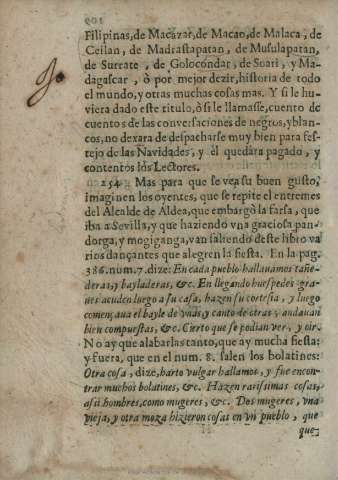 Filipinas, de Macazar, de Macao, de Malaca, de
Ceilan, de Madrastapatan, de Musulapatan,
de Surrate, de Golocondar, de Suari, y Ma-
dagascar, ò por mejor dezir, historia de todo
el mundo, y otras muchas cosas mas. Y si le hu-
viera dado este titulo, ò si le llamasse, cuento de
cuentos de las conversaciones de negros, y blan-
cos, no dexara de despacharse muy bien para fes-
tejo de las Navidades, y èl quedàra pagado, y
contentos los Lectores.
254. Mas para que se vea su buen gusto,
imaginen los oyentes, que se repite el entremes
del Alcalde de Aldea, que embargò la farsa, que
iba a Sevilla, y que haziendo vna graciosa pan-
dorga, y mogiganga, van saliendo deste libro va
rios dançantes que alegren la fiesta. En la pag.
386. num. 7. dize: En cada pueblo hallavamos tañe-
deras, y bayladeras, &c. En llegando huespedes gra-
ves acuden luego a su casa, hazen su cortesia, y luego
comença va el bayle de vnas, y canto de otras; andavan
bien compuestas, &c. Cierto que se podian ver, y oir.
No ay que alabarlas tanto, que ay mucha fiesta:
y fuera, que en el num. 8. salen los bolatines:
Otra cosa, dize, harto vulgar hallamos, y fue encon-
trar muchos bolatines, &c. Hazen rarissimas cosas,
assi hombres, como mugeres, &c. Dos mugeres, vna
vieja, y otra moza hizieron cosas en vn pueblo, que
que